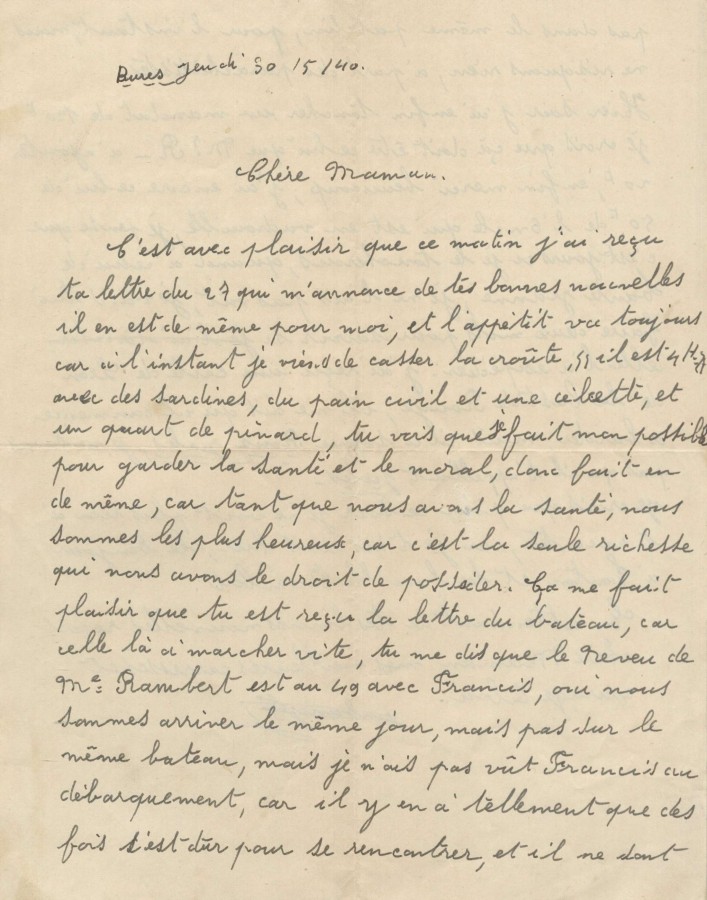 Bures jeudi 30/5/40.
Chère Maman.
C'est avec plaisir que ce matin j'ai reçu
ta lettre du 27 qui m'annonce de tès bonnes nouvelles
il en est de même pour moi, et l'appétit va toujours
car à l'instant je viens de casser la croûte, il est 4 H
avec des sardines, du pain civil et une cibcette, et
un quart de pinard, tu vois que je fait mon possible
pour garder la santé et le moral, donc fait en
de même, car tant que nous avons la santé, nous
sommes les plus heureux, car c'est la seule richesse
qui nous avons le droit de posséder. Ça me fait
plaisir que tu est reçu la lettre du bateau, car
celle là à marcher vite, tu me dis que le Neveu de
Me Rambert est au 49 avec Francis, oui nous
sommes arriver le même jour, mais pas sur le
même bateau, mais je n'ais pas vût Francis au
débarquement, car il y en à tèllement que des
fois c'est dûr pour se rencontrer, et il ne dont